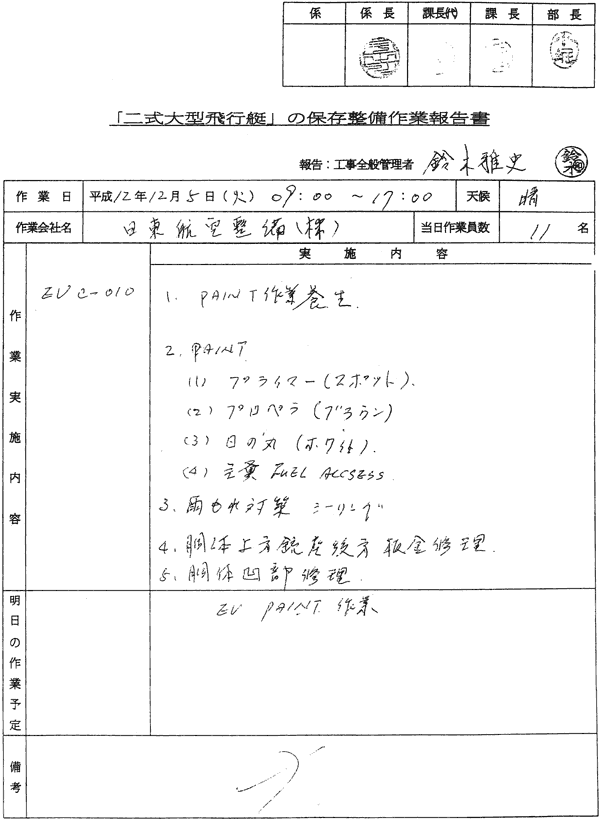 係 係長 課長代 課長 部長
「二式大型飛行艇」の保存整備作業報告書
報告：工事全般管理者 鈴木雅史
作業日 平成12年12月5日（火） 09:00 ～17:00 天候 晴
作業会社名 日東航空整備（株） 当日作業員数 11 名
実施内容
作業実施内容
EV C-010
1. PAINT作業養生.
2. PAINT
(1) プライマー(スポット).
(2) プロペラ (ブラウン)
(3) 日の丸 (ホワイト).
(4) 主翼 FUEL ACCSESS.
3. 雨もれ対策 シーリング
4. 胴体上方銃座後方 板金修理.
5. 胴体凹部修理.
明日の作業予定
EV PAINT 作業
備考